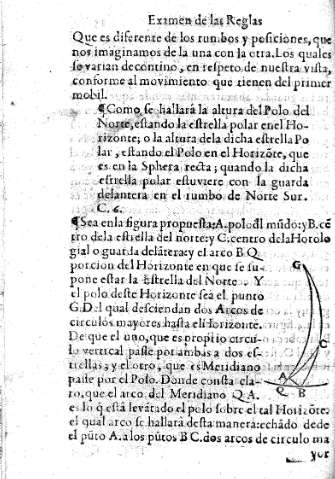 Examen de las Reglas
Que es diferente de los rumbos y posiciones, que
nos imaginamos de la una con la otra. Los quales
se varian decontino, en respeto de nuestra vista,
conforme al movimiento que tienen del primer
mobil.
¶Como se hallará la altura del Polo del
Norte, estando la estrella polar enel Ho-
rizonte; o la altura dela dicha estrella Po
lar, estando el Polo en el Horizõte, que
es en la Sphera recta; quando la dicha
estrella polar estuviere con la guarda
delantera en el rumbo de Norte Sur.
C. 6.
¶Sea enla figura propuesta; A. polo đl mũdo: y B. cẽ
tro dela estrella del norte: y C. centro dela Horolo
gial o guarda delãtera; y el arco B Q
porcion del Horizonte en que se su-
pone estar la Estrella del Norte. Y
el polo deste Horizonte sea el punto
G. Del qual desciendan dos Arcos de
circulos mayores hasta el Horizonte.
De que el uno, que es proprio circu-
lo vertical passe por ambas a dos es-
trellas; y el otro, que es Meridiano
passe por el Polo. Donde consta cla-
ro, que el arco del Meridiano Q A.
es lo q̃ està levãtado el polo sobre el tal Horizõte.
el qual arco se hallará desta manera: echãdo desde
el pũto A. a los pũtos B C. dos arcos de circulo ma
yor
G
C
A
Q B